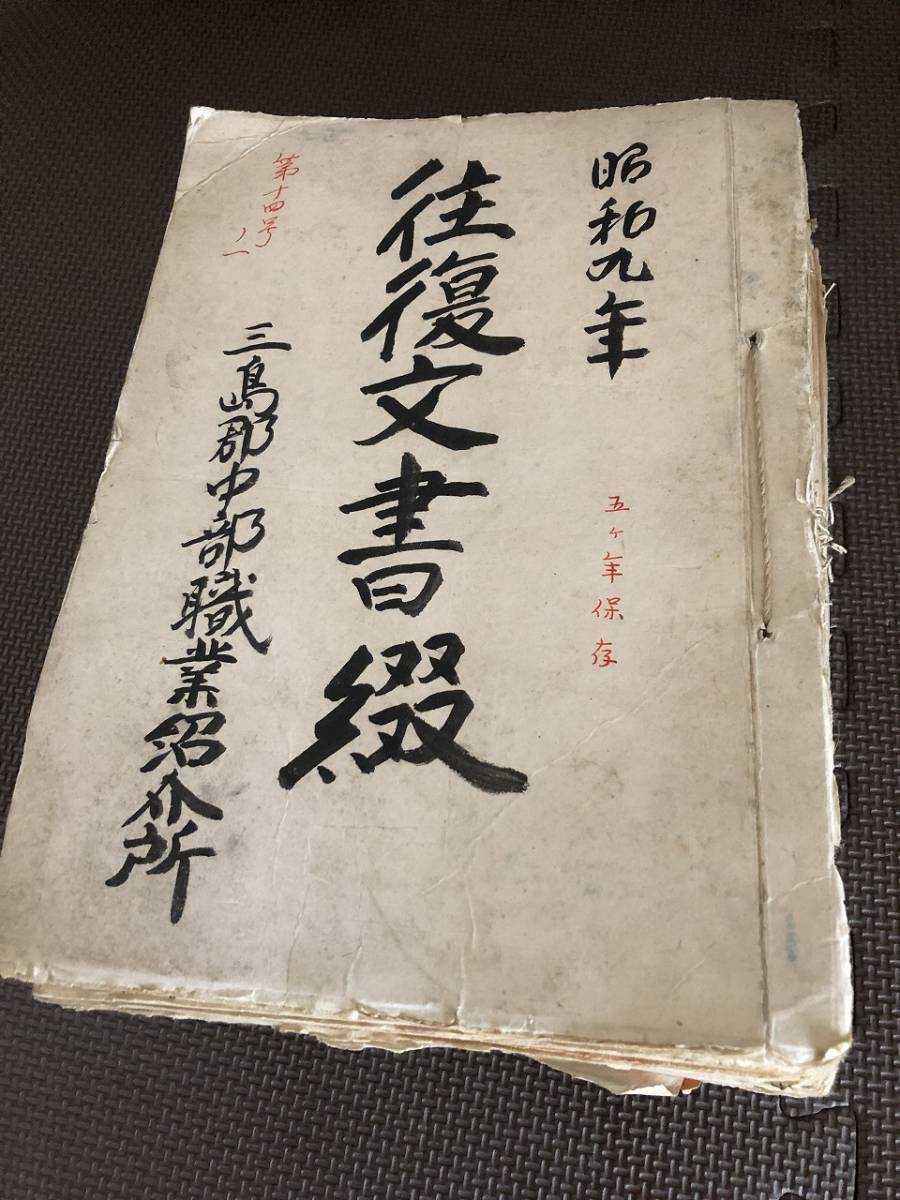 昭和九年
五ヶ年保存
往復文書綴
第十四号ノ一
三島郡中部職業紹介所